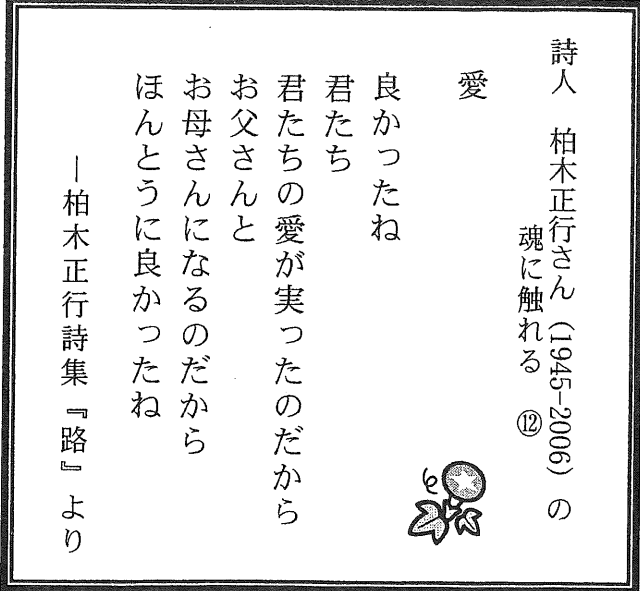 詩人　柏木正行さん（1945−2006）の
魂に触れる　⑫
愛
良かったね
君たち
君たちの愛が実ったのだから
お父さんと
お母さんになるのだから
ほんとうに良かったね
―柏木正行詩集『路』より